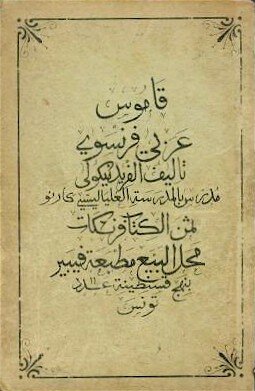 قاموس
عربي فرنسوي
تاليف الفريد نيكولى
مدرس بالمدرسة العليا ليسي كارنو
ثمن الكتاب فرنكات
محل البيع مطبعة فيبير
بنهج قسنطينة عدد ١١
تونس